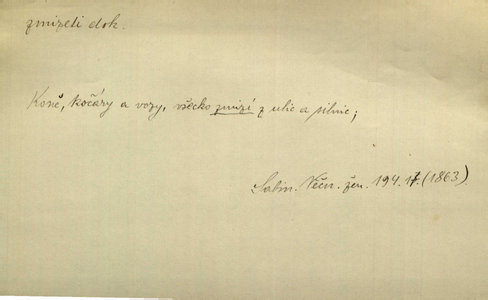 zmizeti dok.
Koně, kočáry a vozy, všecko zmizí z ulic a silnic;
Sabin. Věčn. žen. 194.17.(1863).